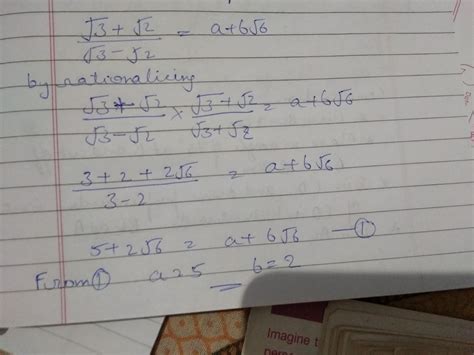 √3 + √2 / √3 - √2 = a + b√6
by rationalising
√3 + √2 / √3 - √2 × √3 + √2 / √3 + √2 = a + b√6
3 + 2 + 2√6 / 3 - 2 = a + b√6
5 + 2√6 = a + b√6 — ①
From ① a = 5 b = 2
Imagine t